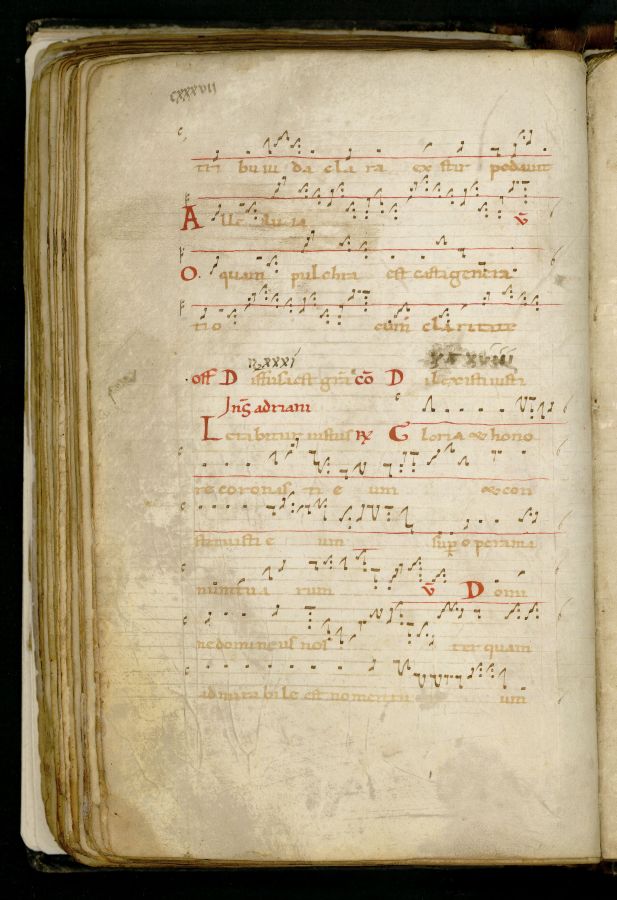 cxxxvii
tri bu iu da cla ra ex stir
A lle lu ia v̄
O quam pulchra est casta
tio cum claritate
off D iffusa est grā cō D
Jnḡ adriani
L etabitur iustus R̄ G loria & hono
re coronas ti e um & con
stituisti e um sup opera ma
nuum tua rum v̄ D omi
ne dominus nos ter quam
admira bi le est nomen tu um